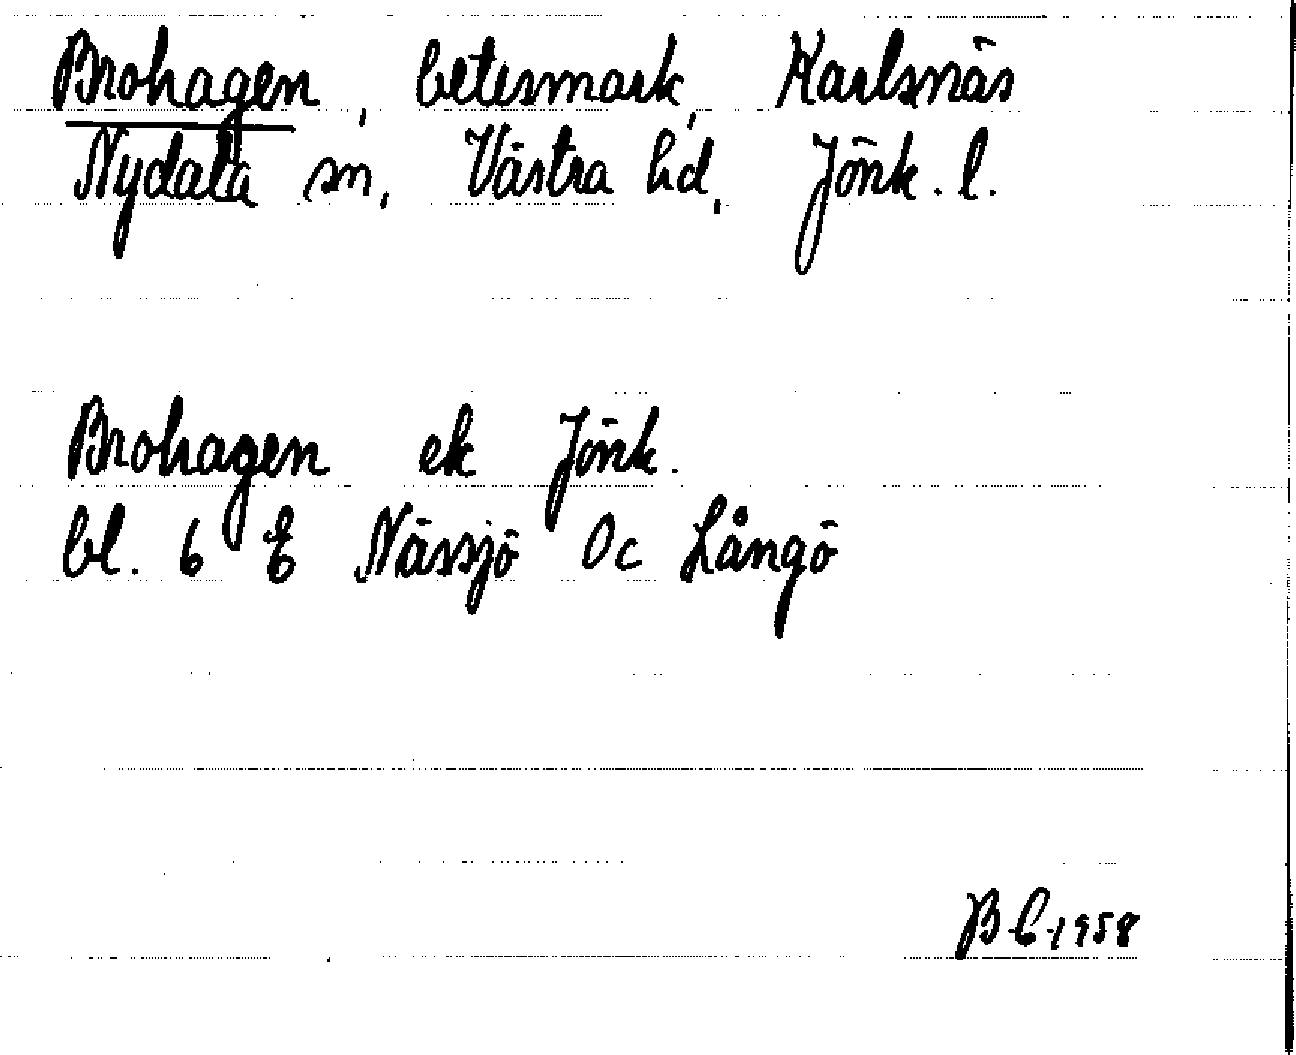 Brohagen, betesmark, Karlsnäs
Nydala sn, Västra hd, Jönk. l.
Brohagen ek Jönk.
bl. 6 E Nässjö Oc Långö
1958